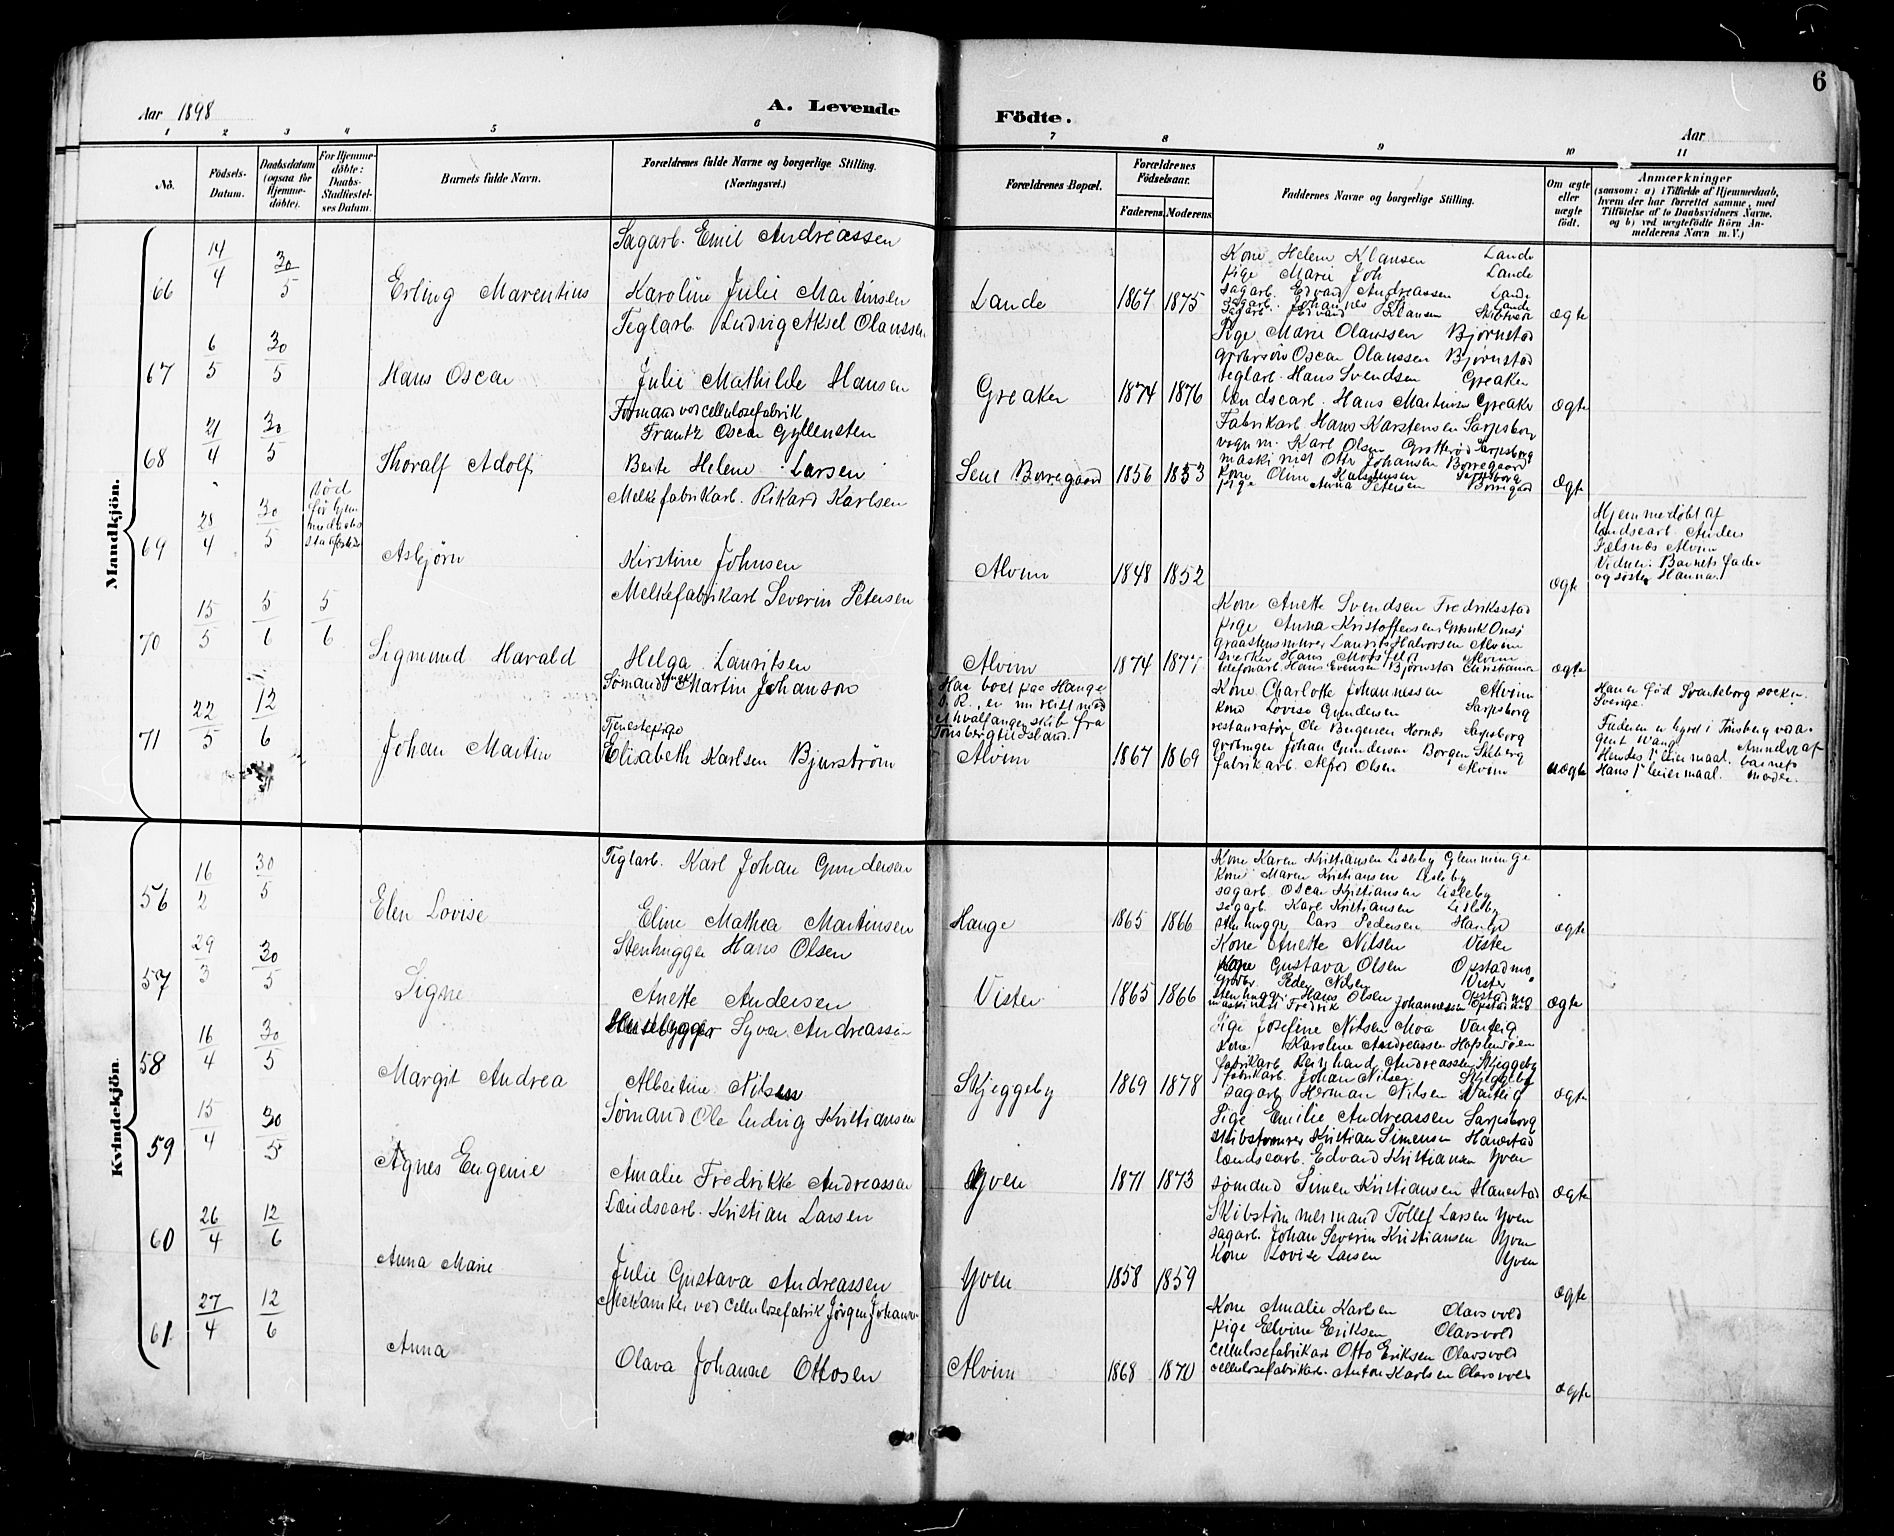 6
Aar 1898
A. Levende
Födte.
Aar
1 2 3 4 5 6 7 8 9 10 11
Nö.
Födsels-Datum.
Daabsdatum (ogsaa for Hjemme-döbte).
For Hjemme-döbte: Daabs-Stadfæstel-ses Datum.
Barnets fulde Navn.
Forældrenes fulde Navne og borgerlige Stilling. (Næringsvei.)
Forældrenes Bopæl.
Forældrenes Födselsaar.
Faderens. Moderens.
Faddernes Navne og borgerlige Stilling.
Om ægte eller uægte födt.
Anmærkninger
(saasom: a) i Tilfælde af Hjemmedaab,
hvem der har forrettet samme, med
Tilföielse af to Daabsvidners Navne,
og b) ved uegtefödte Börn An-
melderens Navn m. V.)
Mandkjön.
66 14/4 30/5 Erling Marentius
Sagarb. Emil Andreassen
Karoline Julie Martinsen
Lande 1867 1875
Kone Helene Klausen Lande
pige Marie Joh Lande
sagarb. Edvard Andreassen Lande
sagarb. Johannes Joh Lande
sagarb. Edvard Klausen Skibtvedt
ægte
67 6/5 30/5 Hans Oscar
Teglarb. Ludvig Aksel Olaussen
Julie Mathilde Hansen
Greaker 1874 1876
Pige Marie Olaussen Bjørnstad
Oscar Olaussen Bjørnstad
teglarb. Hans Svendsen Greaker
lændsearb. Hans Martinsen Greaker
ægte
68 21/4 30/5 Thoralf Adolf
Formand ved cellulosefabrik
Frantz Oscar Gyllensten
Berte Helene Larsen
Borregaard 1856 1853
Fabrikarb. Hans Karstensen Sarpsborg
vognm. Karl Olsen Grotterød Sarpsborg
maskinist Otto Johansen Borregaard
Kone Oline Karstensen Sarpsborg
pige Anna Petersen Borregaard
ægte
69 28/4 30/5
død før hjemmedaabs stadfæstelse
Asbjørn
Melkefabrikarb. Rikard Karlsen
Kirstine Johnsen
Alvim 1848 1852
ægte
Hjemmedøbt af
lændsearb. Anders
Fælsnæs Alvim
Vidner: Barnets Fader
og søster Hanna.
70 15/5 5/6 5/6 Sigmund Harald
Melkefabrikarb Severin Petersen
Helga Lauritsen
Alvim 1874 1877
Kone Anette Svendsen Fredriksstad
pige Anna Kristoffersen Onsø
graastensmurer Laurits Halvorsen Alvim
Hans Alvim
telefonarb. Hans Evensen Bjørnstad Christiania
ægte
71 22/5 12/6 Johan Martin
Sømand Martin Johanson
Tjenestepige
Elisabeth Karlsen Bjurström
Har boet paa Hauge
er nu reist med
hvalfangerskib fra
Tønsberg til Island.
Alvim 1867 1869
Kone Charlotte Johannessen Alvim
Kone Lovise Gundersen Sarpsborg
restauratør Ole Børgersen Hornæs Sarpsborg
Johan Gundersen Borgen Skieberg
fabrikarb. Alfred Olsen Alvim
uægte
Han er fød Svarteborg socken
Sverige.
Faderen er hyret i Tønsberg ved a-
gent Wang. Anmeldt af
Hendes 1ste leiermaal. barnets
Hans 1ste leiermaal. moder.
Kvindekjön
56 16/2 30/5 Elen Lovise
Teglarb. Karl Johan Gundersen
Eline Mathea Martinsen
Hauge 1865 1866
Kone Karen Kristiansen Lisleby Glemminge
Kone Maren Kristiansen Lisleby
sagarb. Oscar Kristiansen Lisleby
sagarb. Karl Kristiansen Lisleby
stenhugger Lars Pedersen Hauge
ægte
57 29/3 30/5 Signe
Stenhugger Hans Olsen
Anette Andersen
Vister 1865 1866
Kone Anette Nilsen Vister
Kone Gustava Olsen Opstadmo
Peder Nilsen Vister
stenhugger Hans Olsen Opstadmo
maskinist Fredrik Johannessen Opstadmo
ægte
58 16/4 30/5 Margit Andrea
Syver Andreassen
Albertine Nilsen
Skjeggeby 1869 1878
Pige Josefine Nilsen Moa Varteig
Kone Karoline Andreassen Hafslundøen
fabrikarb. Reinhard Andreassen Skjeggeby
fabrikarb. Johan Nilsen Skjeggeby
sagarb Herman Nilsen Varteig
ægte
59 15/4 30/5 Agnes Eugenie
Sømand Ole Ludvig Kristiansen
Amalie Fredrikke Andreassen
Yven 1871 1873
Pige Emilie Andreassen Sarpsborg
skibstømrer Kristian Simensen Hanestad
lændsearb. Edvard Kristiansen Yven
sømand Simen Kristiansen Hanestad
ægte
60 26/4 12/6 Anna Marie
Lændsearb. Kristian Larsen
Julie Gustava Andreassen
Yven 1858 1859
Skibstømmermand Tollef Larsen Yven
sagarb. Johan Severin Kristiansen Yven
Kone Lovise Larsen Yven
ægte
61 27/4 12/6 Anna
Mekaniker ved cellulosefabrik Jørgen Johansen
Olava Johanne Ottosen
Alvim 1868 1870
Kone Amalie Karlsen Olavsvold
pige Elvine Eriksen Olavsvold
cellulosefabrikarb Otto Eriksen Olavsvold
cellulosefabrikarb. Anton Karlsen Olavsvold
ægte